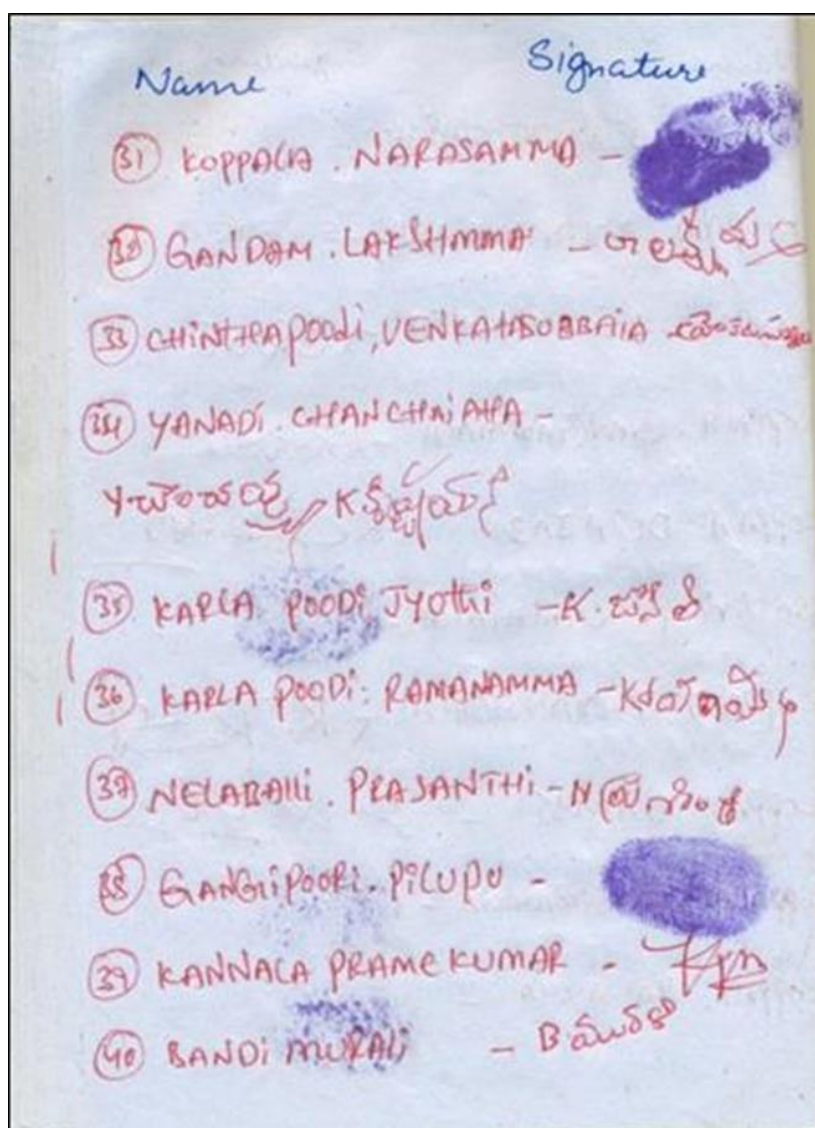 Name Signature
31 KOPPALA . NARASAMMA -
32 GANDAM . LAKSHMMA -
33 CHINTHAPOODi, VENKATASUBBAIA
34 YANADi . CHANCHAiAHA -
35 KARLA POODi JYOthi - K. జ్యోతి
36 KARLA POODi : RAMANAMMA -
37 NELABAlli . PRASANTHi - N
38 GANGliPOORi . PiLUPU -
39 KANNALA PRAMEKUMAR -
40 BANDi MURALi - B మురళి